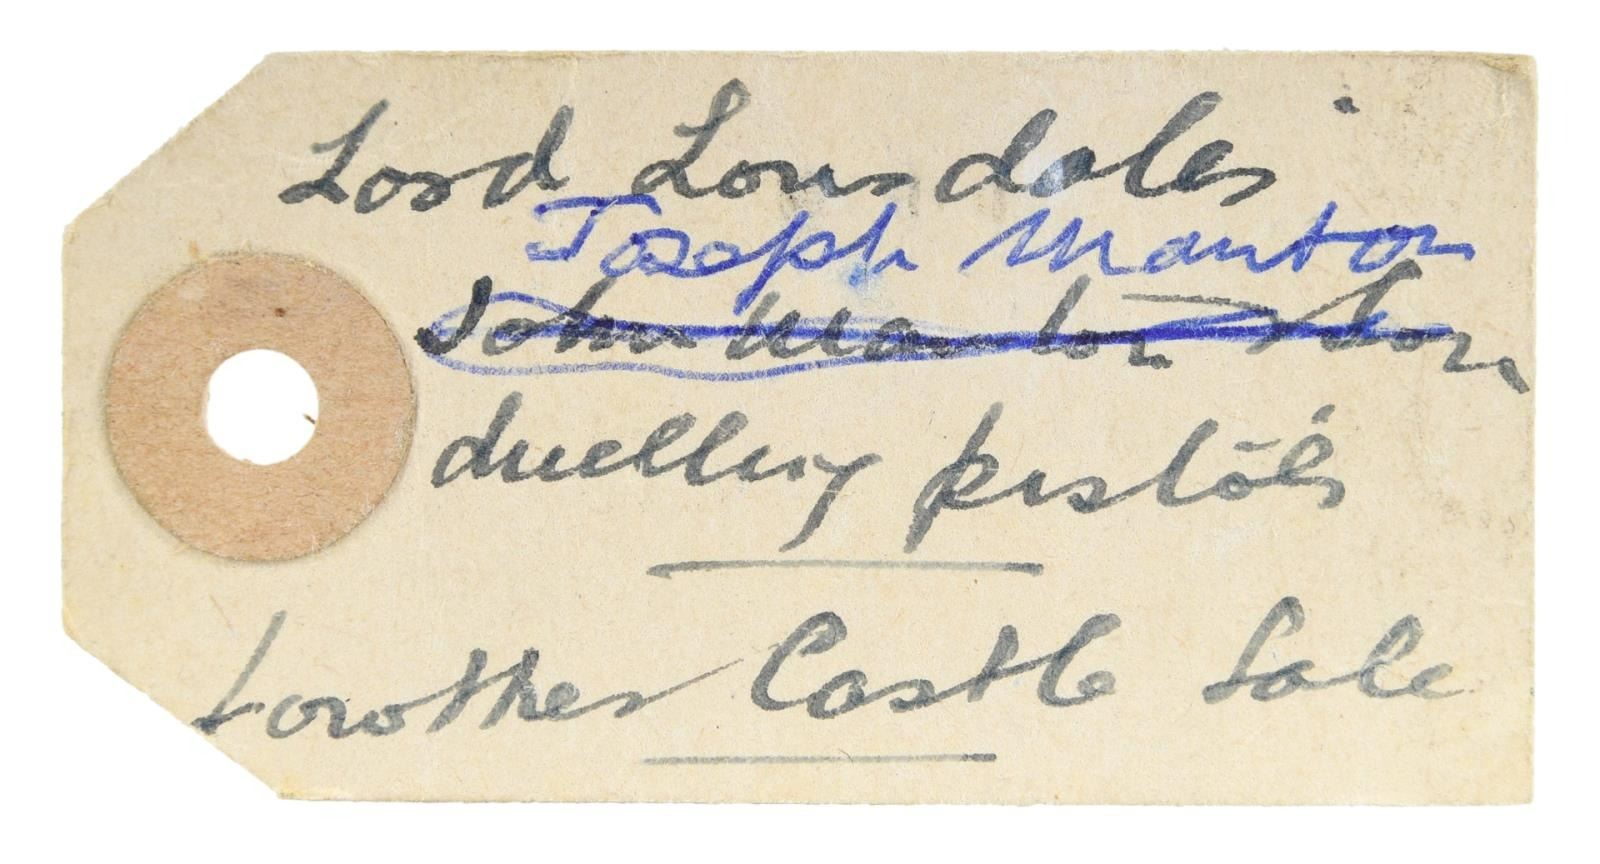 Lord Lonsdale's
Joseph Manton
John Manton & Son
duelling pistols
Lowther Castle Sale